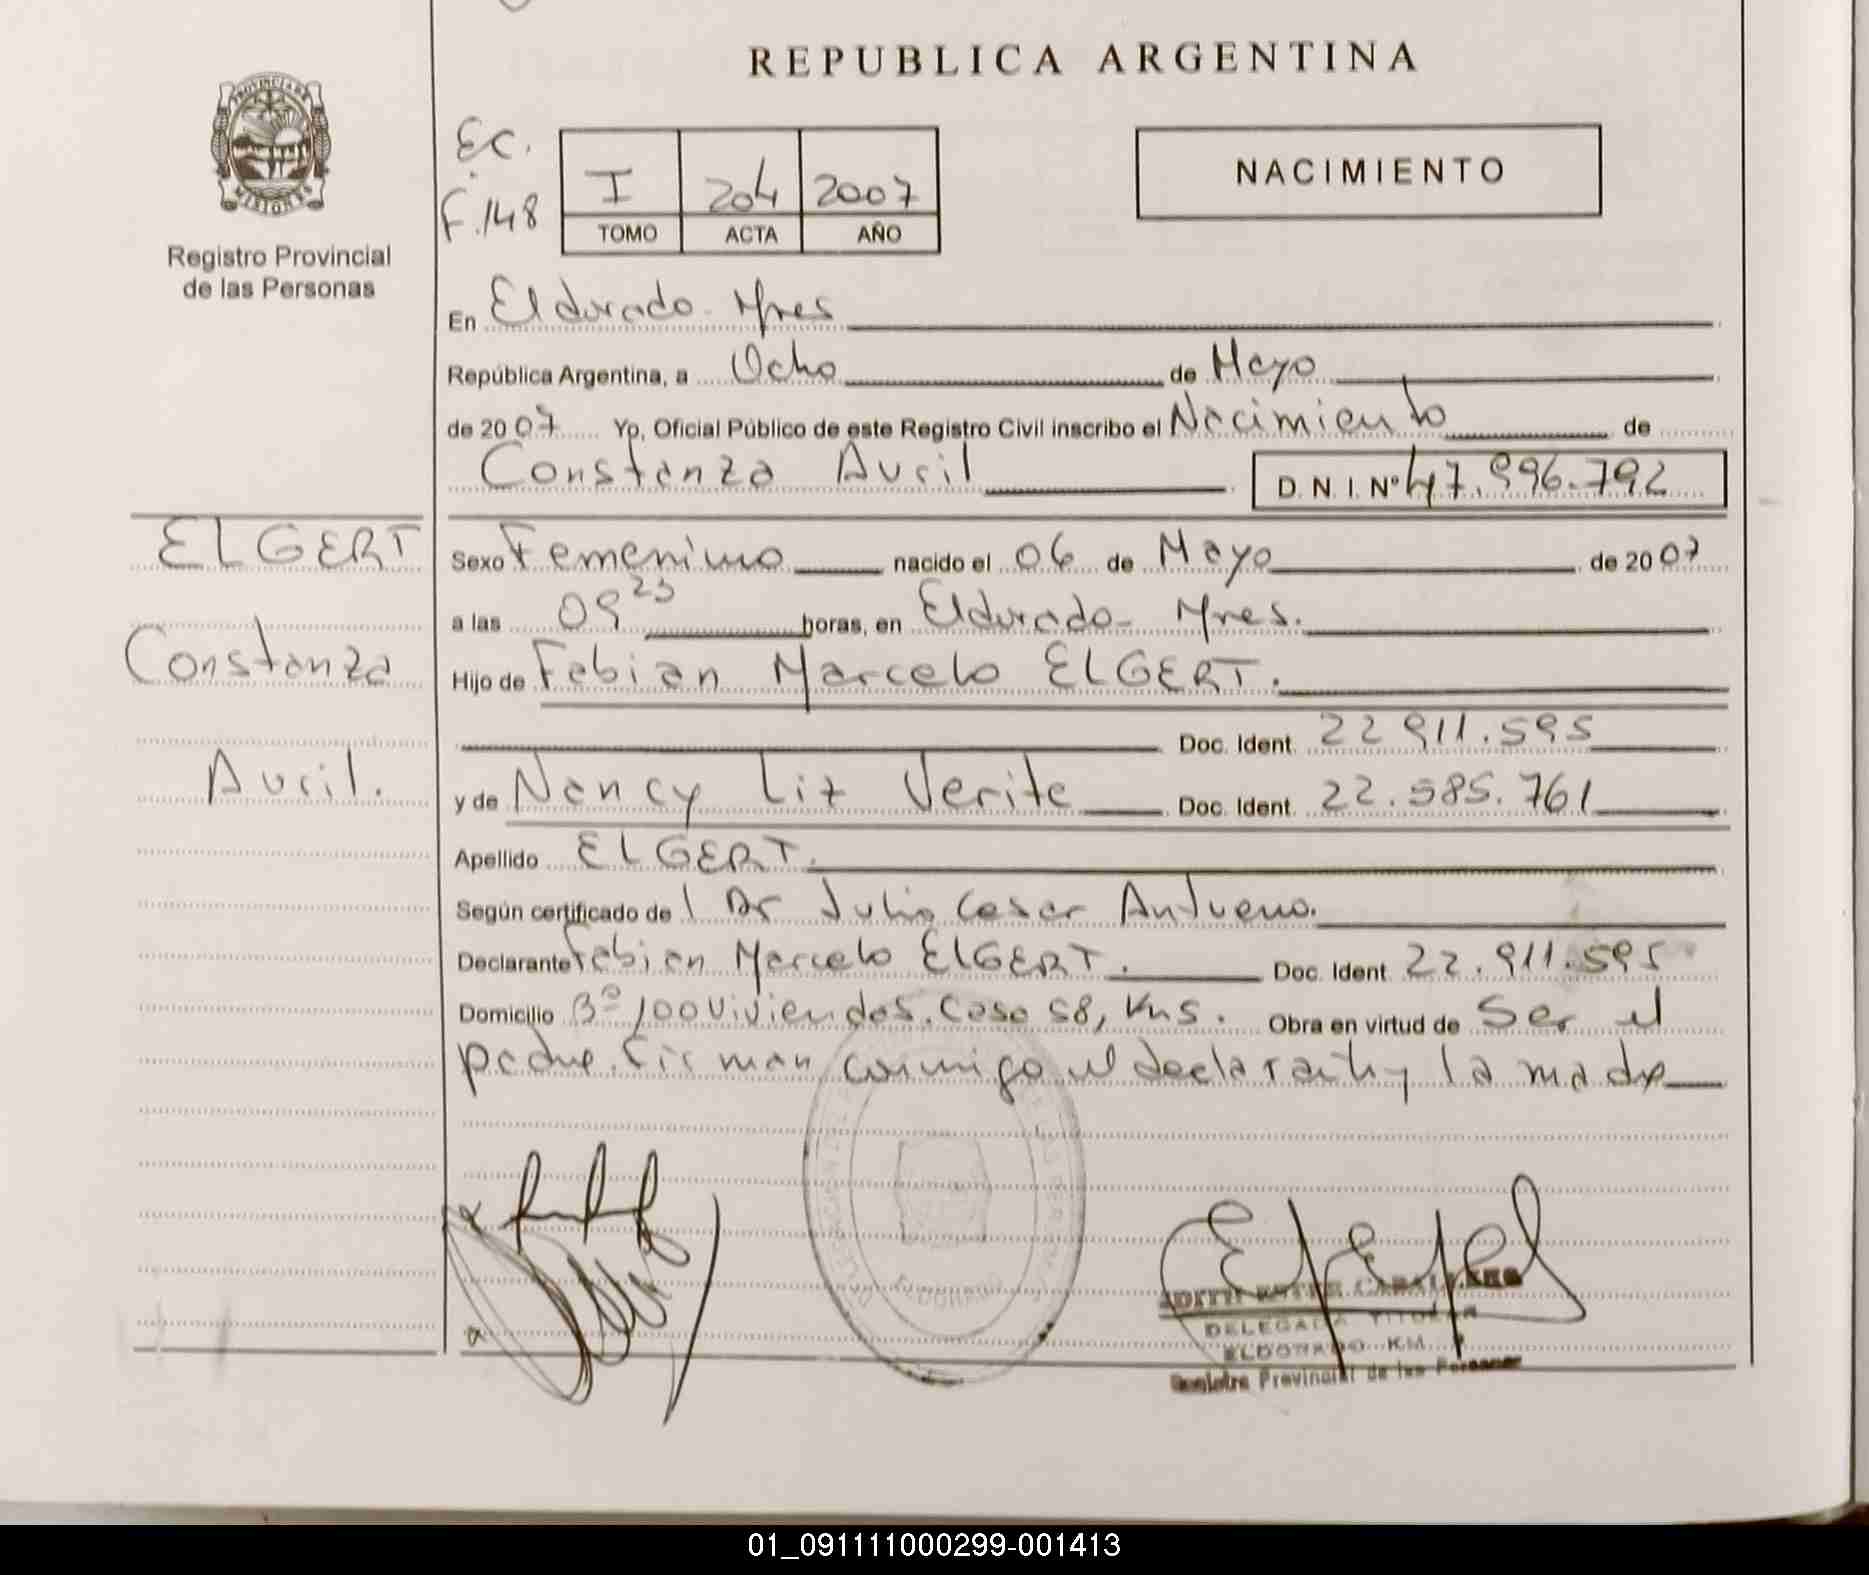 REPUBLICA ARGENTINA
PROVINCIA DE MISIONES
Registro Provincial
de las Personas
Ec.
F.148
I 204 2007
TOMO ACTA AÑO
NACIMIENTO
En Eldorado - Mnes
República Argentina, a Ocho de Mayo
de 2007 Yo, Oficial Público de este Registro Civil inscribo el Nacimiento de
Constanza Avril D. N. I. Nº 47.996.792
ELGERT
Constanza
Avril.
Sexo Femenino nacido el 06 de Mayo de 2007
a las 09 25 horas, en Eldorado - Mnes.
Hijo de Fabian Marcelo ELGERT.
Doc. Ident. 22 911.595
y de Nancy Liz Verite Doc. Ident. 22.585.761
Apellido ELGERT.
Según certificado de l Dr Julio Cesar
Declarante Fabian Marcelo ELGERT. Doc. Ident. 22.911.595
Domicilio 3º 100 viviendas. Casa 58, Obra en virtud de Ser el
padre. Firman conmigo el declarante y la madre
ELDORADO
DELEGADA TITULAR
ELDORADO KM.
Registro Provincial de las Personas
01_091111000299-001413